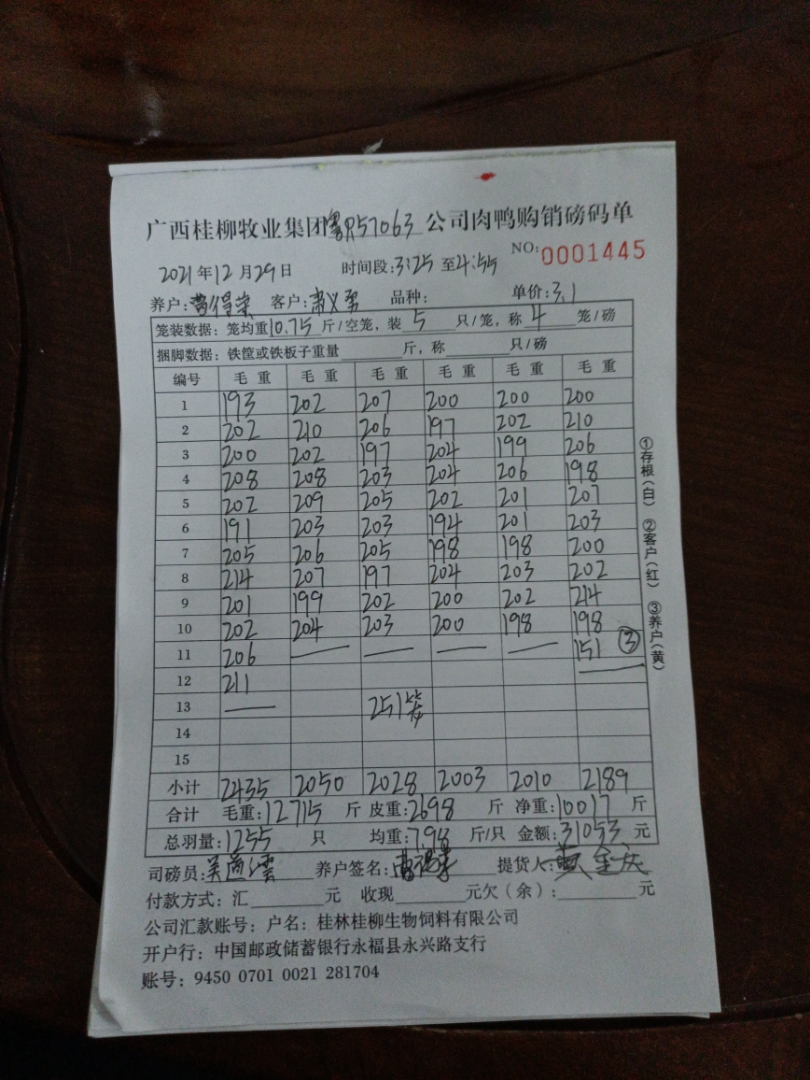 广西桂柳牧业集团粤R57063公司肉鸭购销磅码单
NO:0001445
2021年12月29日 时间段:3:25至4:55
养户: 客户: 品种: 单价:3.1
笼装数据: 笼均重10.75斤/空笼, 装5只/笼, 称4笼/磅
捆脚数据: 铁筐或铁板子重量 斤, 称 只/磅
编号 毛重 毛重 毛重 毛重 毛重 毛重
1 193 202 207 200 200 200
2 202 210 206 197 202 210
3 200 202 197 204 199 206
4 208 208 203 204 206 198
5 202 209 205 202 201 207
6 191 203 203 194 201 203
7 205 206 205 198 198 200
8 214 207 197 204 203 202
9 201 199 202 200 202 214
10 202 204 203 200 198 198
11 206 — — — — 151 ③
12 211 —
13 — 251笼
14
15
小计 2435 2050 2028 2003 2010 2189
合计 毛重:12715斤 皮重:2698斤 净重:10017斤
总羽量:1255只 均重:7.98斤/只 金额:31053元
司磅员: 养户签名: 提货人:
付款方式: 汇 元 收现 元欠(余): 元
公司汇款账号: 户名: 桂林桂柳生物饲料有限公司
开户行: 中国邮政储蓄银行永福县永兴路支行
账号: 9450 0701 0021 281704
①存根(白) ②客户(红) ③养户(黄)